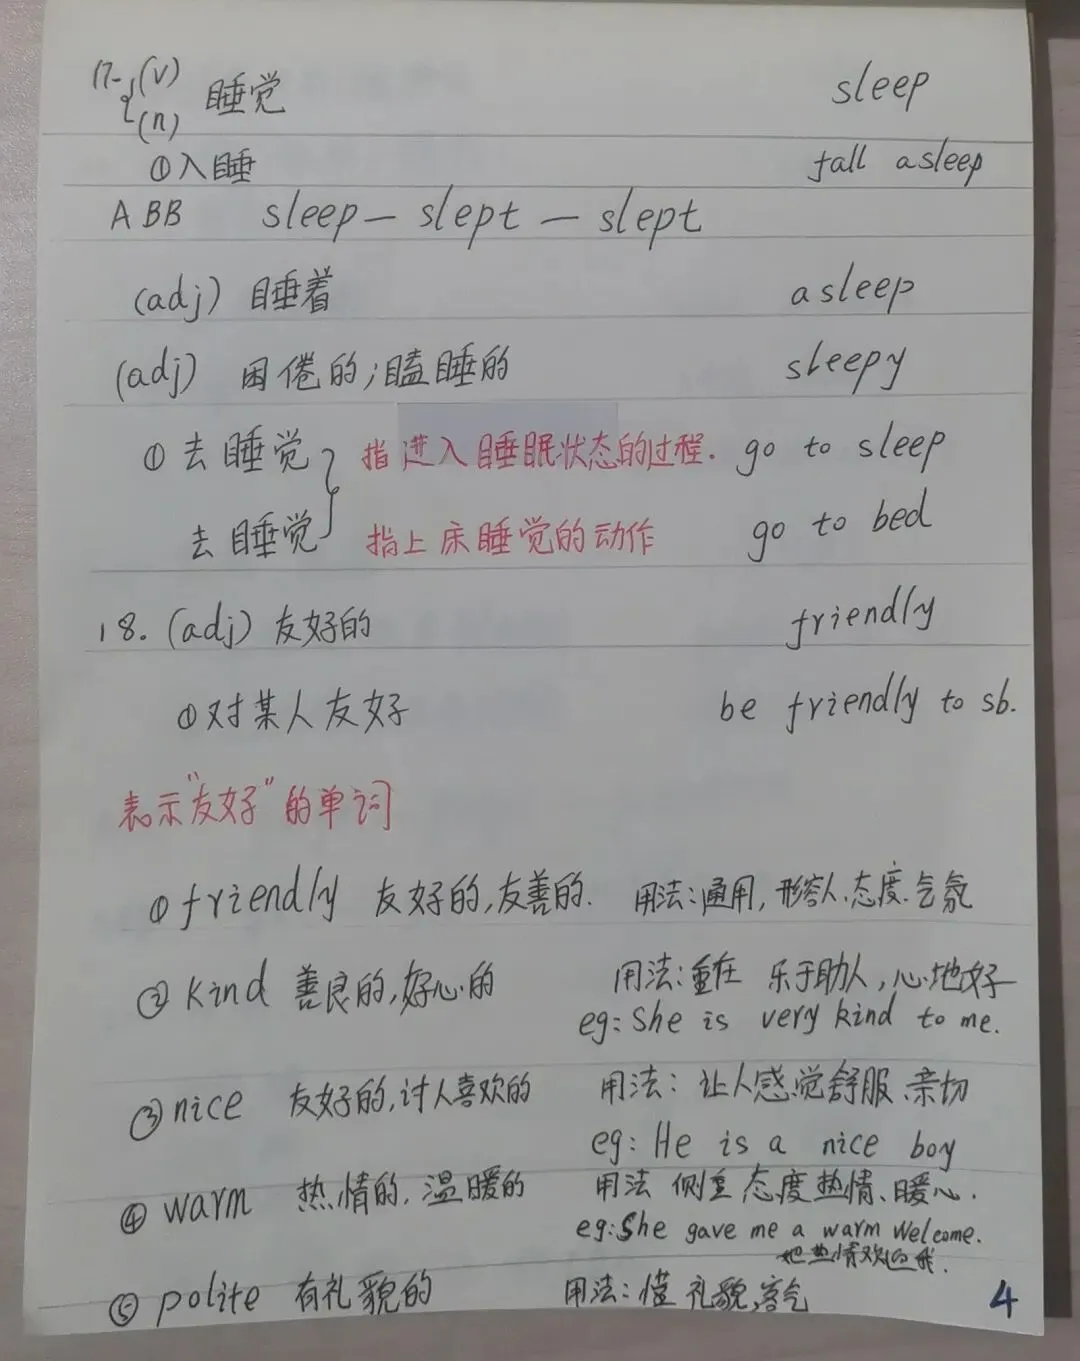 17. (v) (n) 睡觉 sleep
①入睡 fall asleep
ABB sleep — slept — slept
(adj) 睡着 asleep
(adj) 困倦的;瞌睡的 sleepy
① 去睡觉 指进入睡眠状态的过程. go to sleep
去睡觉 指上床睡觉的动作 go to bed
18. (adj) 友好的 friendly
①对某人友好 be friendly to sb.
表示"友好"的单词
① friendly 友好的,友善的. 用法:通用, 形容人、态度、气氛
② kind 善良的,好心的 用法:重在 乐于助人,心地好
eg: She is very kind to me.
③ nice 友好的,讨人喜欢的 用法: 让人感觉舒服、亲切
eg: He is a nice boy
④ warm 热情的,温暖的 用法 侧重 态度热情、暖心.
eg: She gave me a warm welcome.
她热情欢迎我.
⑤ polite 有礼貌的 用法:懂 礼貌,客气
4